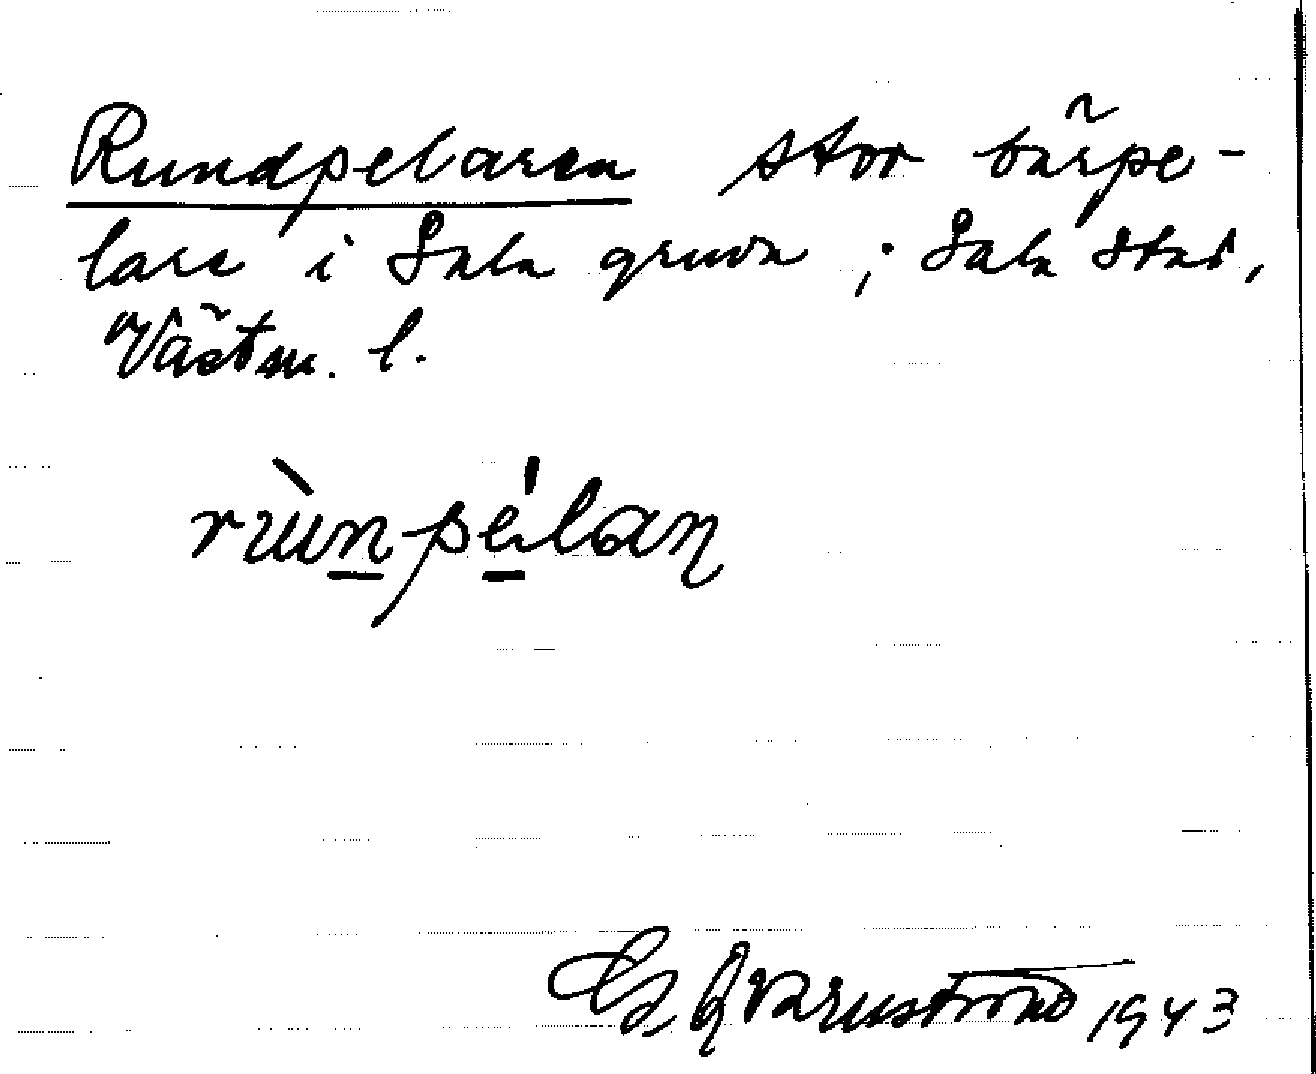 Rundpelaren stor bärpe-
lare i Sala gruva; Sala stad,
Västm. l.
rùnpélaṇ
G. Qvarnström 1943